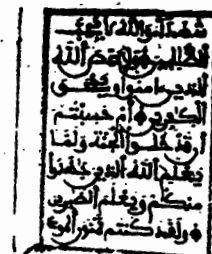 شهداء والله لا يحب
الظلمين وليمحص الله
الذين ءامنوا ويمحق
الكفرين أم حسبتم
أن تدخلوا الجنة ولما
يعلم الله الذين جهدوا
منكم ويعلم الصبرين
ولقد كنتم تمنون الموت